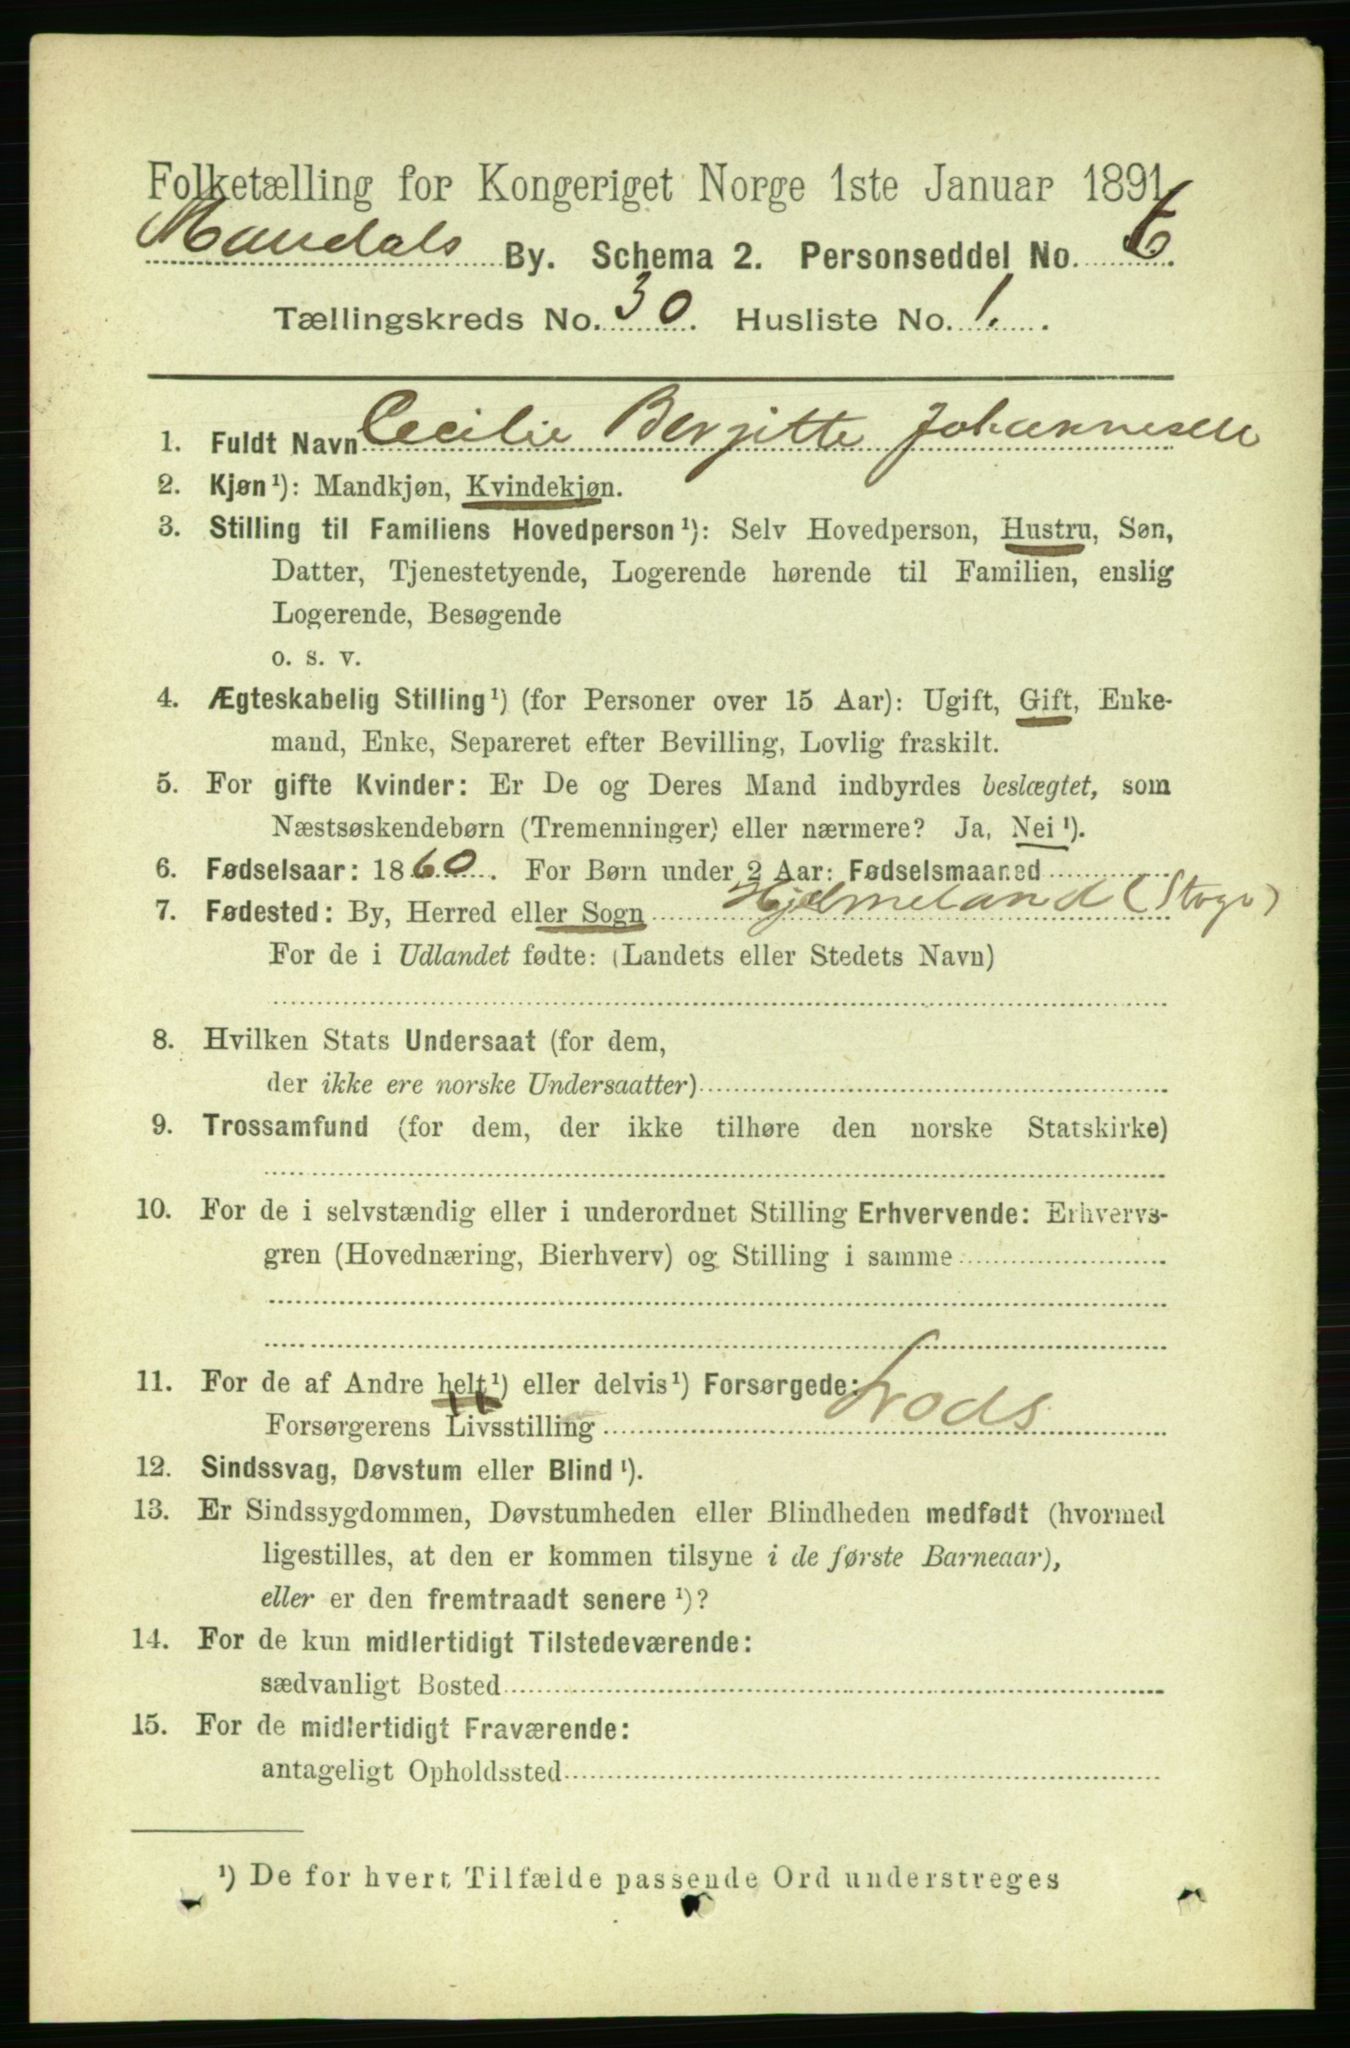 Folketælling for Kongeriget Norge 1ste Januar 1891
Mandals By. Schema 2. Personseddel No. 6.
Tællingskreds No. 30. Husliste No. 1.
1. Fuldt Navn Cecilie Bergitte Johannesen
2. Kjøn¹): Mandkjøn, Kvindekjøn.
3. Stilling til Familiens Hovedperson¹): Selv Hovedperson, Hustru, Søn,
Datter, Tjenestetyende, Logerende hørende til Familien, enslig
Logerende, Besøgende
o. s. v.
4. Ægteskabelig Stilling¹) (for Personer over 15 Aar): Ugift, Gift, Enke-
mand, Enke, Separeret efter Bevilling, Lovlig fraskilt.
5. For gifte Kvinder: Er De og Deres Mand indbyrdes beslægtet, som
Næstsøskendebørn (Tremenninger) eller nærmere? Ja, Nei¹).
6. Fødselsaar: 1860. For Børn under 2 Aar: Fødselsmaaned
7. Fødested: By, Herred eller Sogn Hjelmeland
For de i Udlandet fødte: (Landets eller Stedets Navn)
8. Hvilken Stats Undersaat (for dem,
der ikke ere norske Undersaatter)
9. Trossamfund (for dem, der ikke tilhøre den norske Statskirke)
10. For de i selvstændig eller i underordnet Stilling Erhvervende: Erhvervs-
gren (Hovednæring, Bierhverv) og Stilling i samme
11. For de af Andre helt¹) eller delvis¹) Forsørgede:
Forsørgerens Livsstilling Lods
12. Sindssvag, Døvstum eller Blind¹).
13. Er Sindssygdommen, Døvstumheden eller Blindheden medfødt (hvormed
ligestilles, at den er kommen tilsyne i de første Barneaar),
eller er den fremtraadt senere¹)?
14. For de kun midlertidigt Tilstedeværende:
sædvanligt Bosted
15. For de midlertidigt Fraværende:
antageligt Opholdssted
¹) De for hvert Tilfælde passende Ord understreges